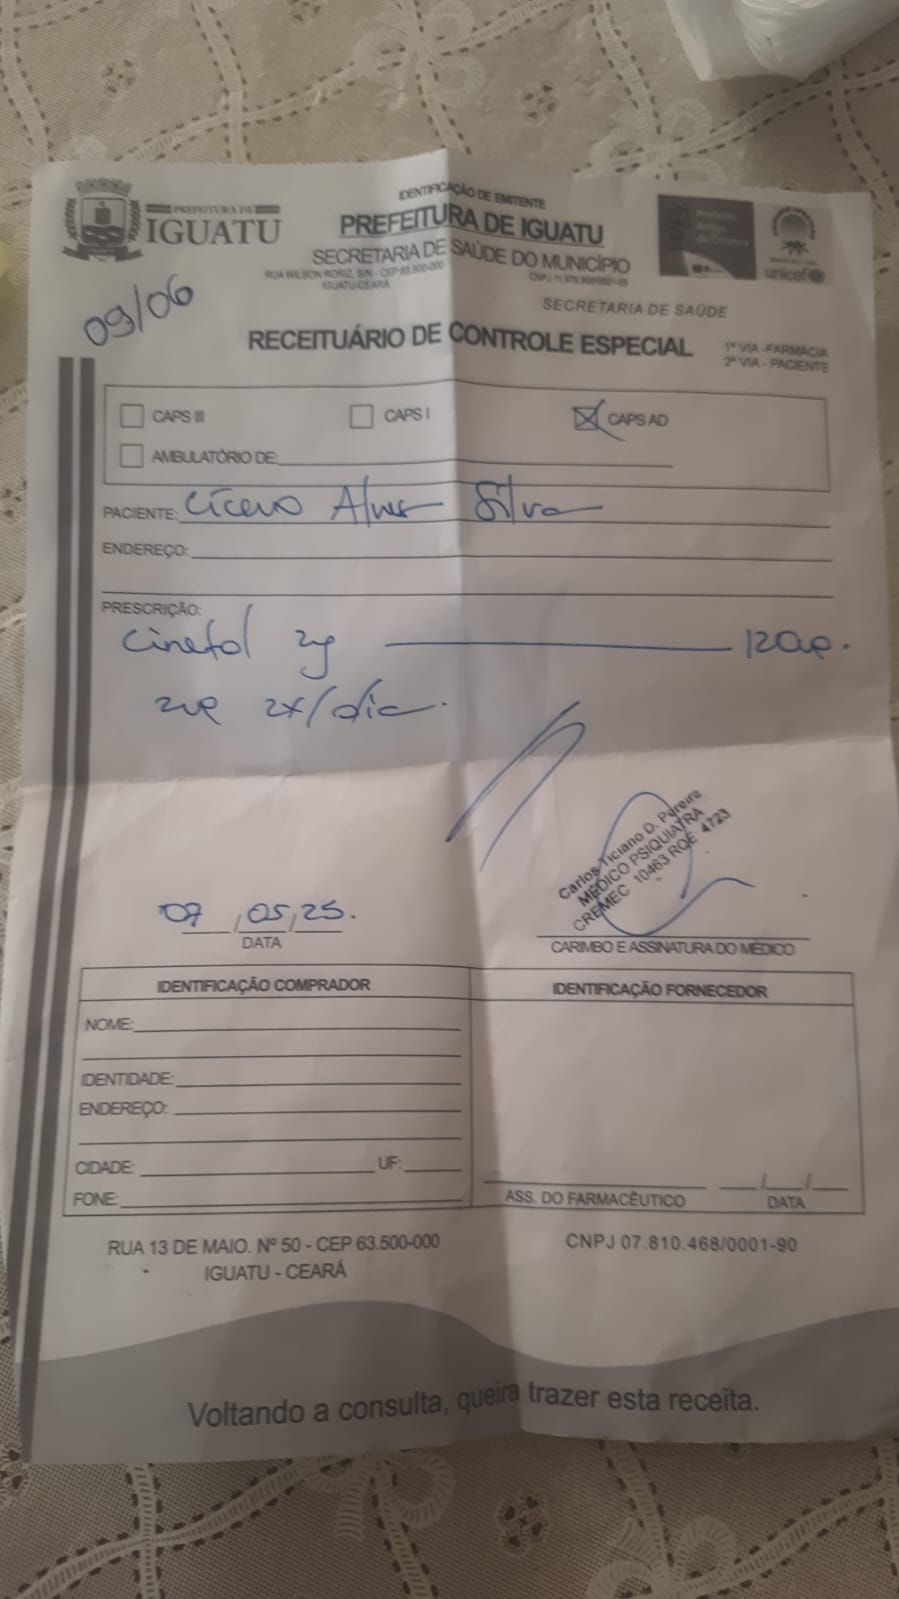 PREFEITURA DE
IGUATU
IDENTIFICAÇÃO DE EMITENTE
PREFEITURA DE IGUATU
SECRETARIA DE SAÚDE DO MUNICÍPIO
RUA WILSON RORIZ, S/N - CEP 63.500-000
IGUATU-CEARÁ
unicef
SECRETARIA DE SAÚDE
09/06
RECEITUÁRIO DE CONTROLE ESPECIAL
1ª VIA - FARMÁCIA
2ª VIA - PACIENTE
CAPS III
CAPS I
CAPS AD
AMBULATÓRIO DE:
PACIENTE: Cícero Alves Silva
ENDEREÇO:
PRESCRIÇÃO:
Cinetol 2mg 120cp.
2cp 2x/dia.
Carlos Ticiano D. Pereira
MÉDICO PSIQUIATRA
CREMEC 10463 RQE 4723
07/05/25.
DATA
CARIMBO E ASSINATURA DO MÉDICO
IDENTIFICAÇÃO COMPRADOR
NOME:
IDENTIDADE:
ENDEREÇO:
CIDADE: UF:
FONE:
IDENTIFICAÇÃO FORNECEDOR
ASS. DO FARMACÊUTICO
DATA
RUA 13 DE MAIO. Nº 50 - CEP 63.500-000
IGUATU - CEARÁ
CNPJ 07.810.468/0001-90
Voltando a consulta, queira trazer esta receita.